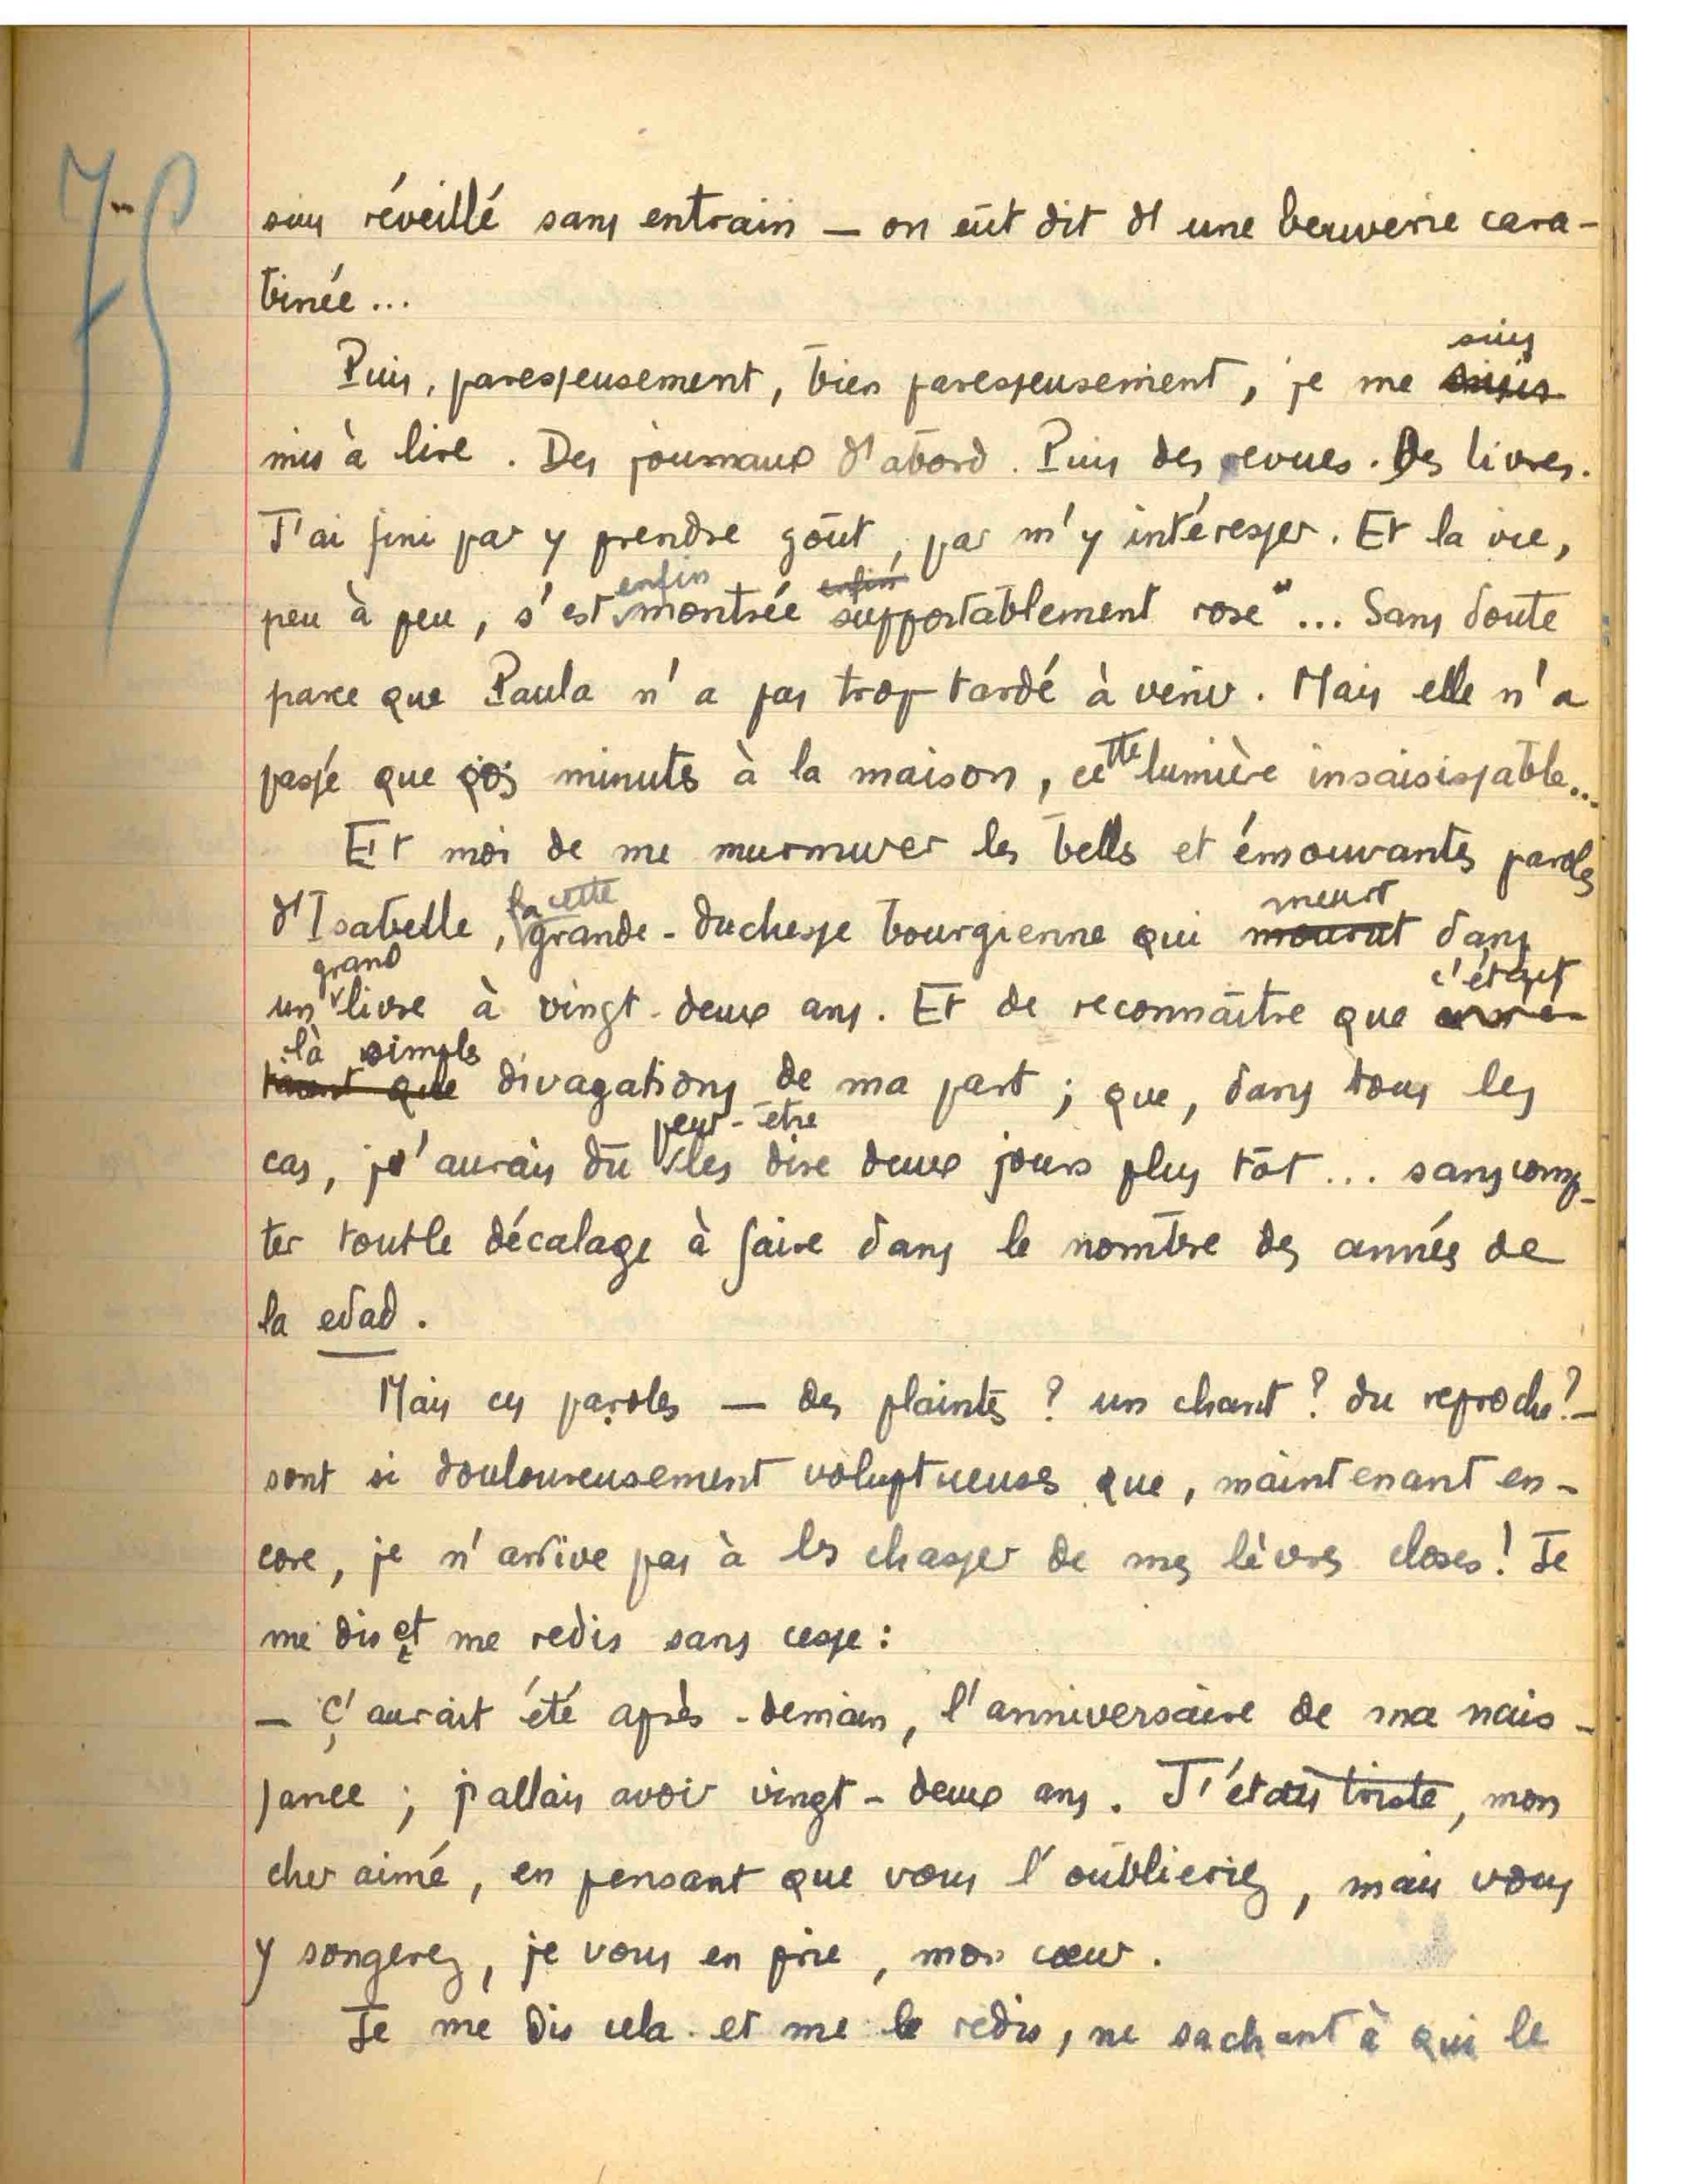 75
suis réveillé sans entrain — on eût dit d'une beuverie cara-
binée...
suis
Puis, paresseusement, bien paresseusement, je me
mis à lire. Des journaux d'abord. Puis des revues. Des livres.
J'ai fini par y prendre goût, par m'y intéresser. Et la vie,
enfin enfin
peu à peu, s'est montrée supportablement rose"... Sans doute
parce que Paula n'a pas trop tardé à venir. Mais elle n'a
passé que minutes à la maison, cette lumière insaisissable...
Et moi de me murmurer les belles et émouvantes paroles
la cette meurt
d'Isabelle, grande-duchesse bourgienne qui mourut dans
grand c'était
un livre à vingt-deux ans. Et de reconnaître que
là simples
que divagations de ma part ; que, dans tous les
peut-être
cas, j'aurais dû les dire deux jours plus tôt... sans comp-
ter tout le décalage à faire dans le nombre des années de
la edad.
Mais ces paroles — des plaintes ? un chant ? du reproche ? —
sont si douloureusement voluptueuses que, maintenant en-
core, je n'arrive pas à les chasser de mes lèvres closes ! Je
me dis et me redis sans cesse :
— Ç'aurait été après-demain, l'anniversaire de ma nais-
sance ; j'allais avoir vingt-deux ans. J'étais triste, mon
cher aimé, en pensant que vous l'oublieriez, mais vous
y songerez, je vous en prie, mon cœur.
Je me dis cela et me le redis, ne sachant à qui le